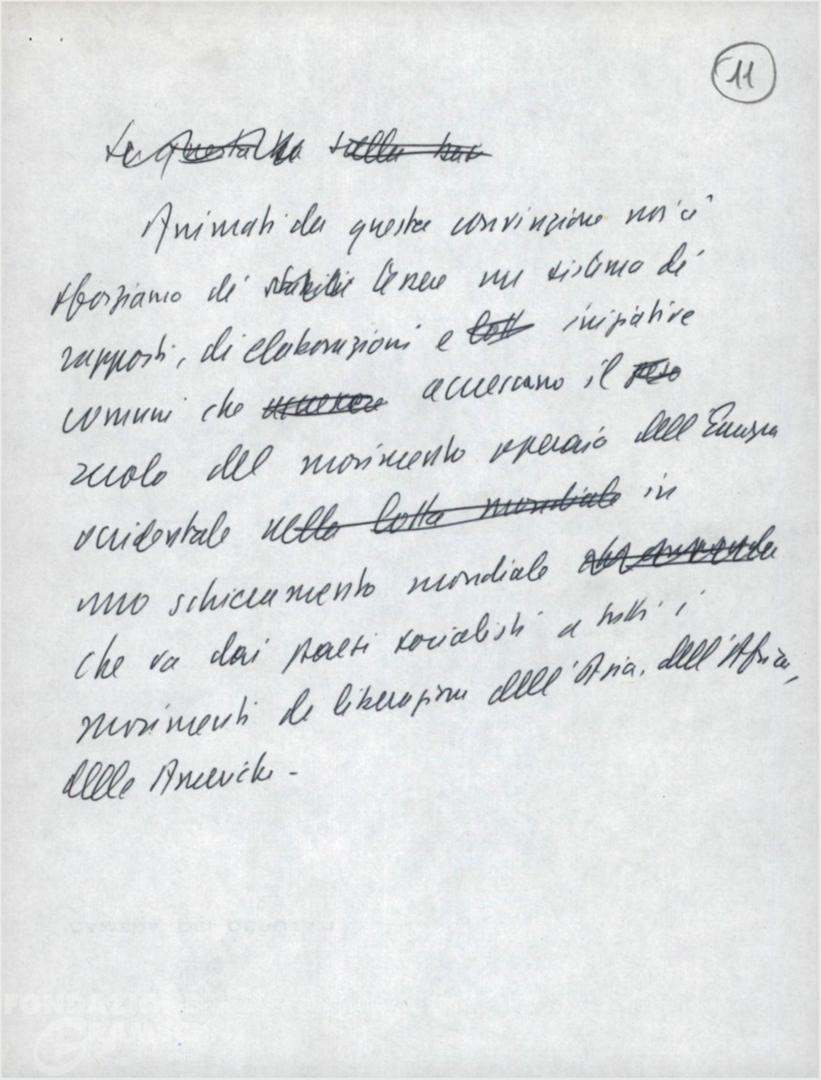 11
Animati da questa convinzione noi ci
sforziamo di tenere un sistema di
rapporti, di elaborazioni e lott iniziative
comuni che accrescano il peso
ruolo del movimento operaio dell'Europa
occidentale nella lotta mondiale in
uno schieramento mondiale
che va dai paesi socialisti a tutti i
movimenti di liberazione dell'Asia, dell'Africa,
delle Americhe -
CAMERA DEI DEPUTATI
FONDAZIONE
GRAMSCI